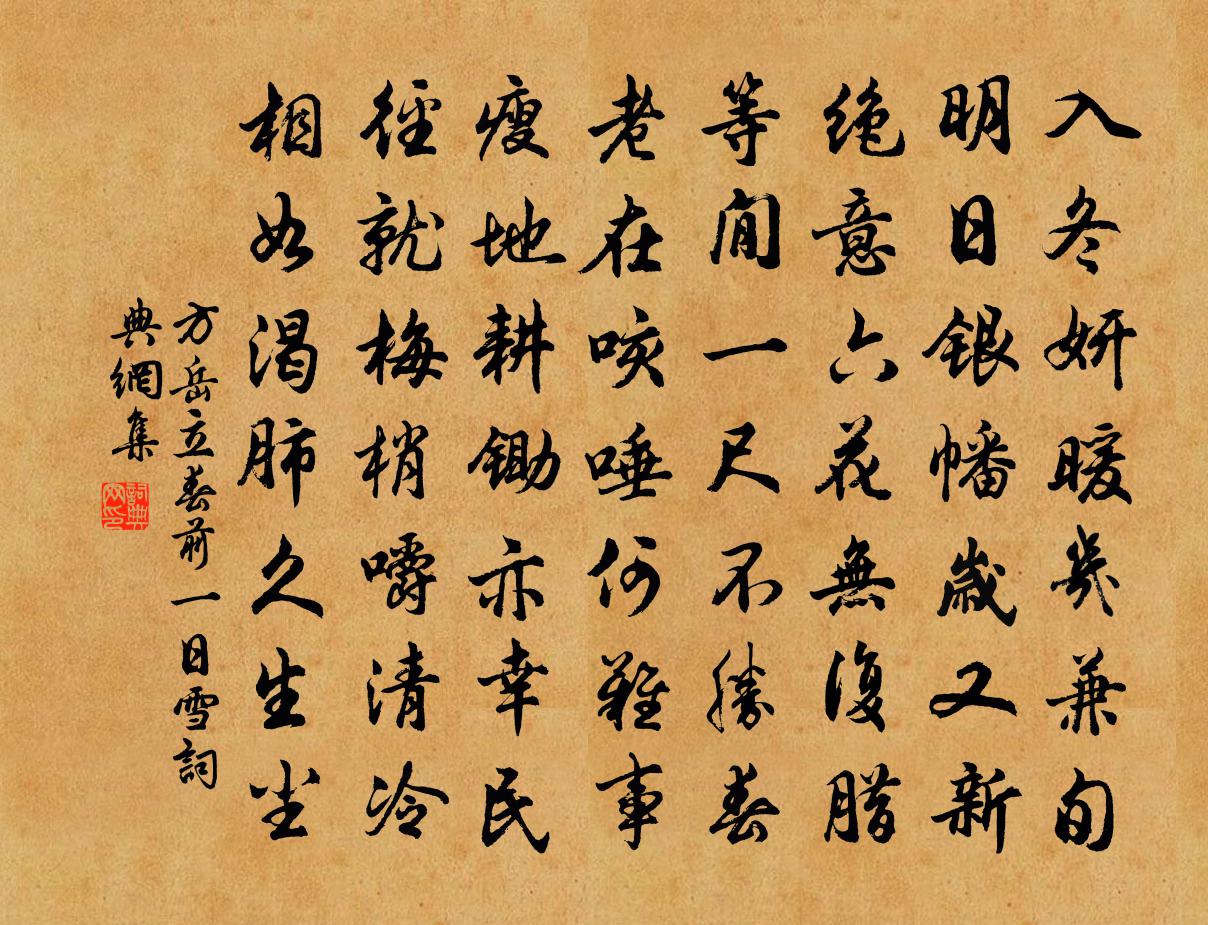 入冬妍暖幾兼旬
明日銀幡歲又新
絶意六花無復腊
等閒一尺不勝春
老在咳唾何難事
瘦地耕鋤亦幸民
徑就梅梢嚼清冷
相如渴肺久生尘
方岳立春前一日雪詞
典網集
詞典
网印